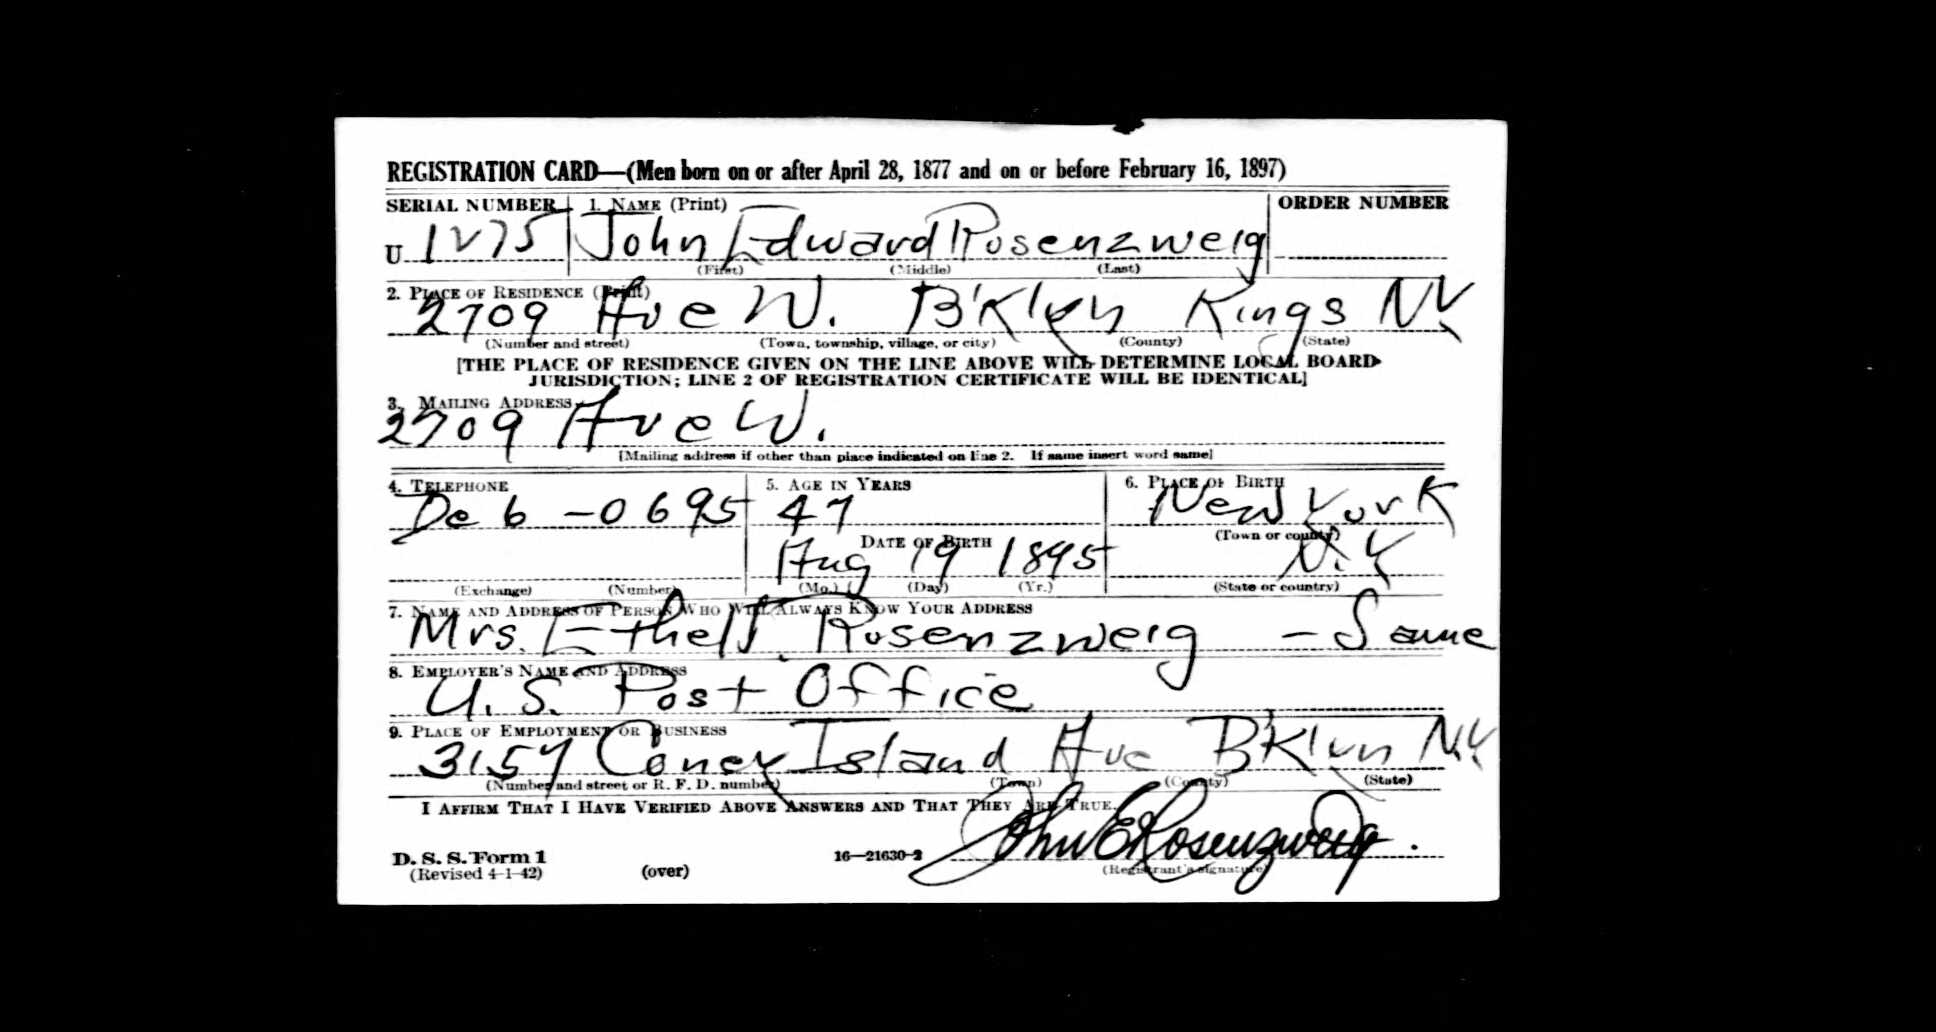 REGISTRATION CARD—(Men born on or after April 28, 1877 and on or before February 16, 1897)
SERIAL NUMBER 1. NAME (Print) ORDER NUMBER
U 1275 John Edward Rosenzweig
(First) (Middle) (Last)
2. PLACE OF RESIDENCE (Print)
2709 Ave W. B'Klyn Kings N.Y.
(Number and street) (Town, township, village, or city) (County) (State)
[THE PLACE OF RESIDENCE GIVEN ON THE LINE ABOVE WILL DETERMINE LOCAL BOARD
JURISDICTION; LINE 2 OF REGISTRATION CERTIFICATE WILL BE IDENTICAL]
3. MAILING ADDRESS
2709 Ave W.
[Mailing address if other than place indicated on line 2. If same insert word same]
4. TELEPHONE 5. AGE IN YEARS 6. PLACE OF BIRTH
De 6 - 0695 47 New York
(Town or county)
DATE OF BIRTH
Aug 19 1895 N.Y
(Exchange) (Number) (Mo.) (Day) (Yr.) (State or country)
7. NAME AND ADDRESS OF PERSON WHO WILL ALWAYS KNOW YOUR ADDRESS
Mrs. Ethel J. Rosenzweig - Same
8. EMPLOYER'S NAME AND ADDRESS
U.S. Post Office
9. PLACE OF EMPLOYMENT OR BUSINESS
3157 Coney Island Ave B'Klyn N.Y.
(Number and street or R. F. D. number) (Town) (County) (State)
I AFFIRM THAT I HAVE VERIFIED ABOVE ANSWERS AND THAT THEY ARE TRUE.
John E Rosenzweig
D. S. S. Form 1
(Revised 4-1-42) (over) 16—21630-2 (Registrant's signature)